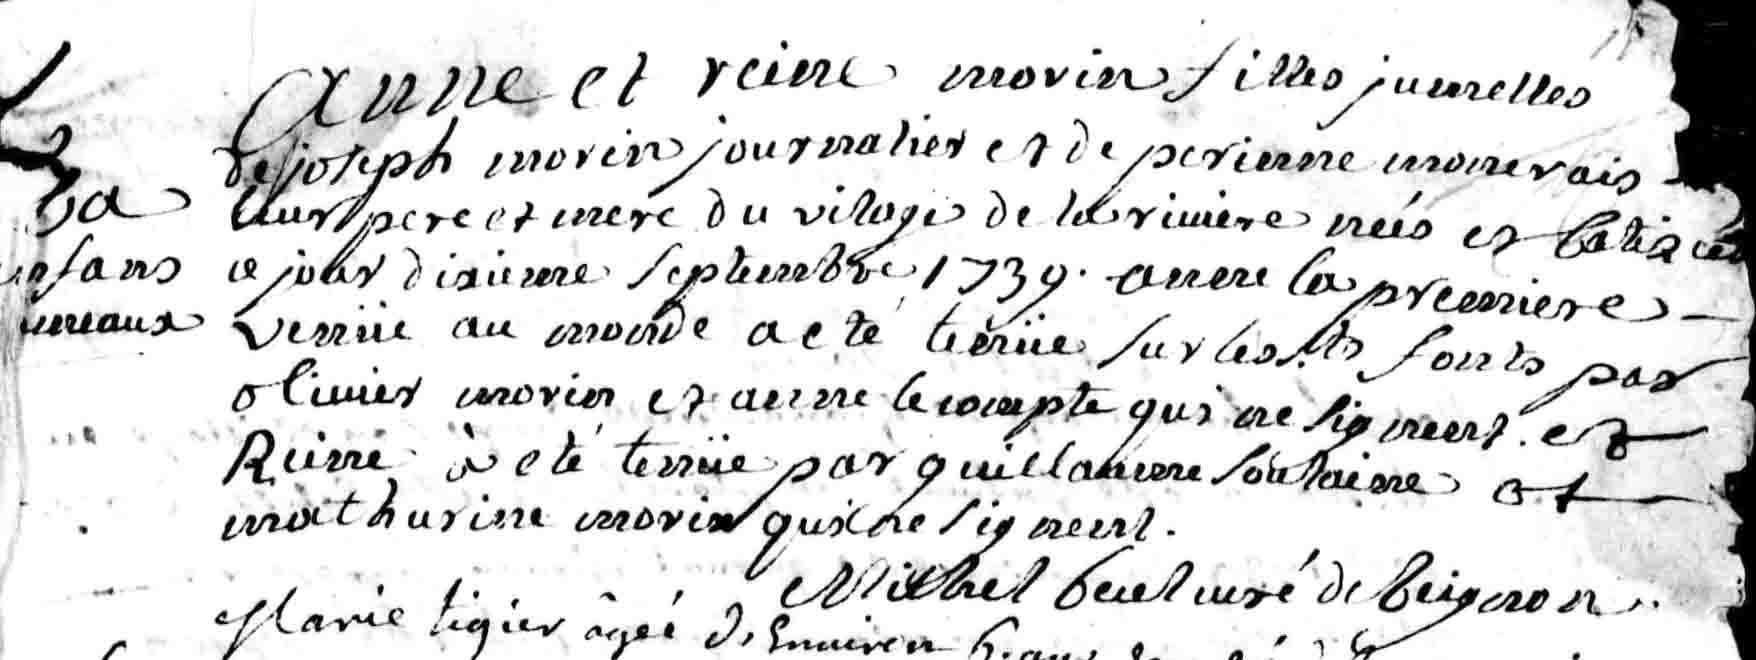 Anne et reine morin filles jumelles
de joseph morin journalier et de perinne
leur pere et mere du vilage de la riviere nées et batisées
enfans
ce jour dixieme septembre 1739. anne la premiere
umeaux
venüe au monde a eté tenüe sur les sts fonts par
olivier morin et anne le compte qui ne signent. et
Reine à eté tenüe par guillaume soulaine et
mathurine morin qui ne signent.
Michel curé de beignon
Marie tigier âgée d'Environ